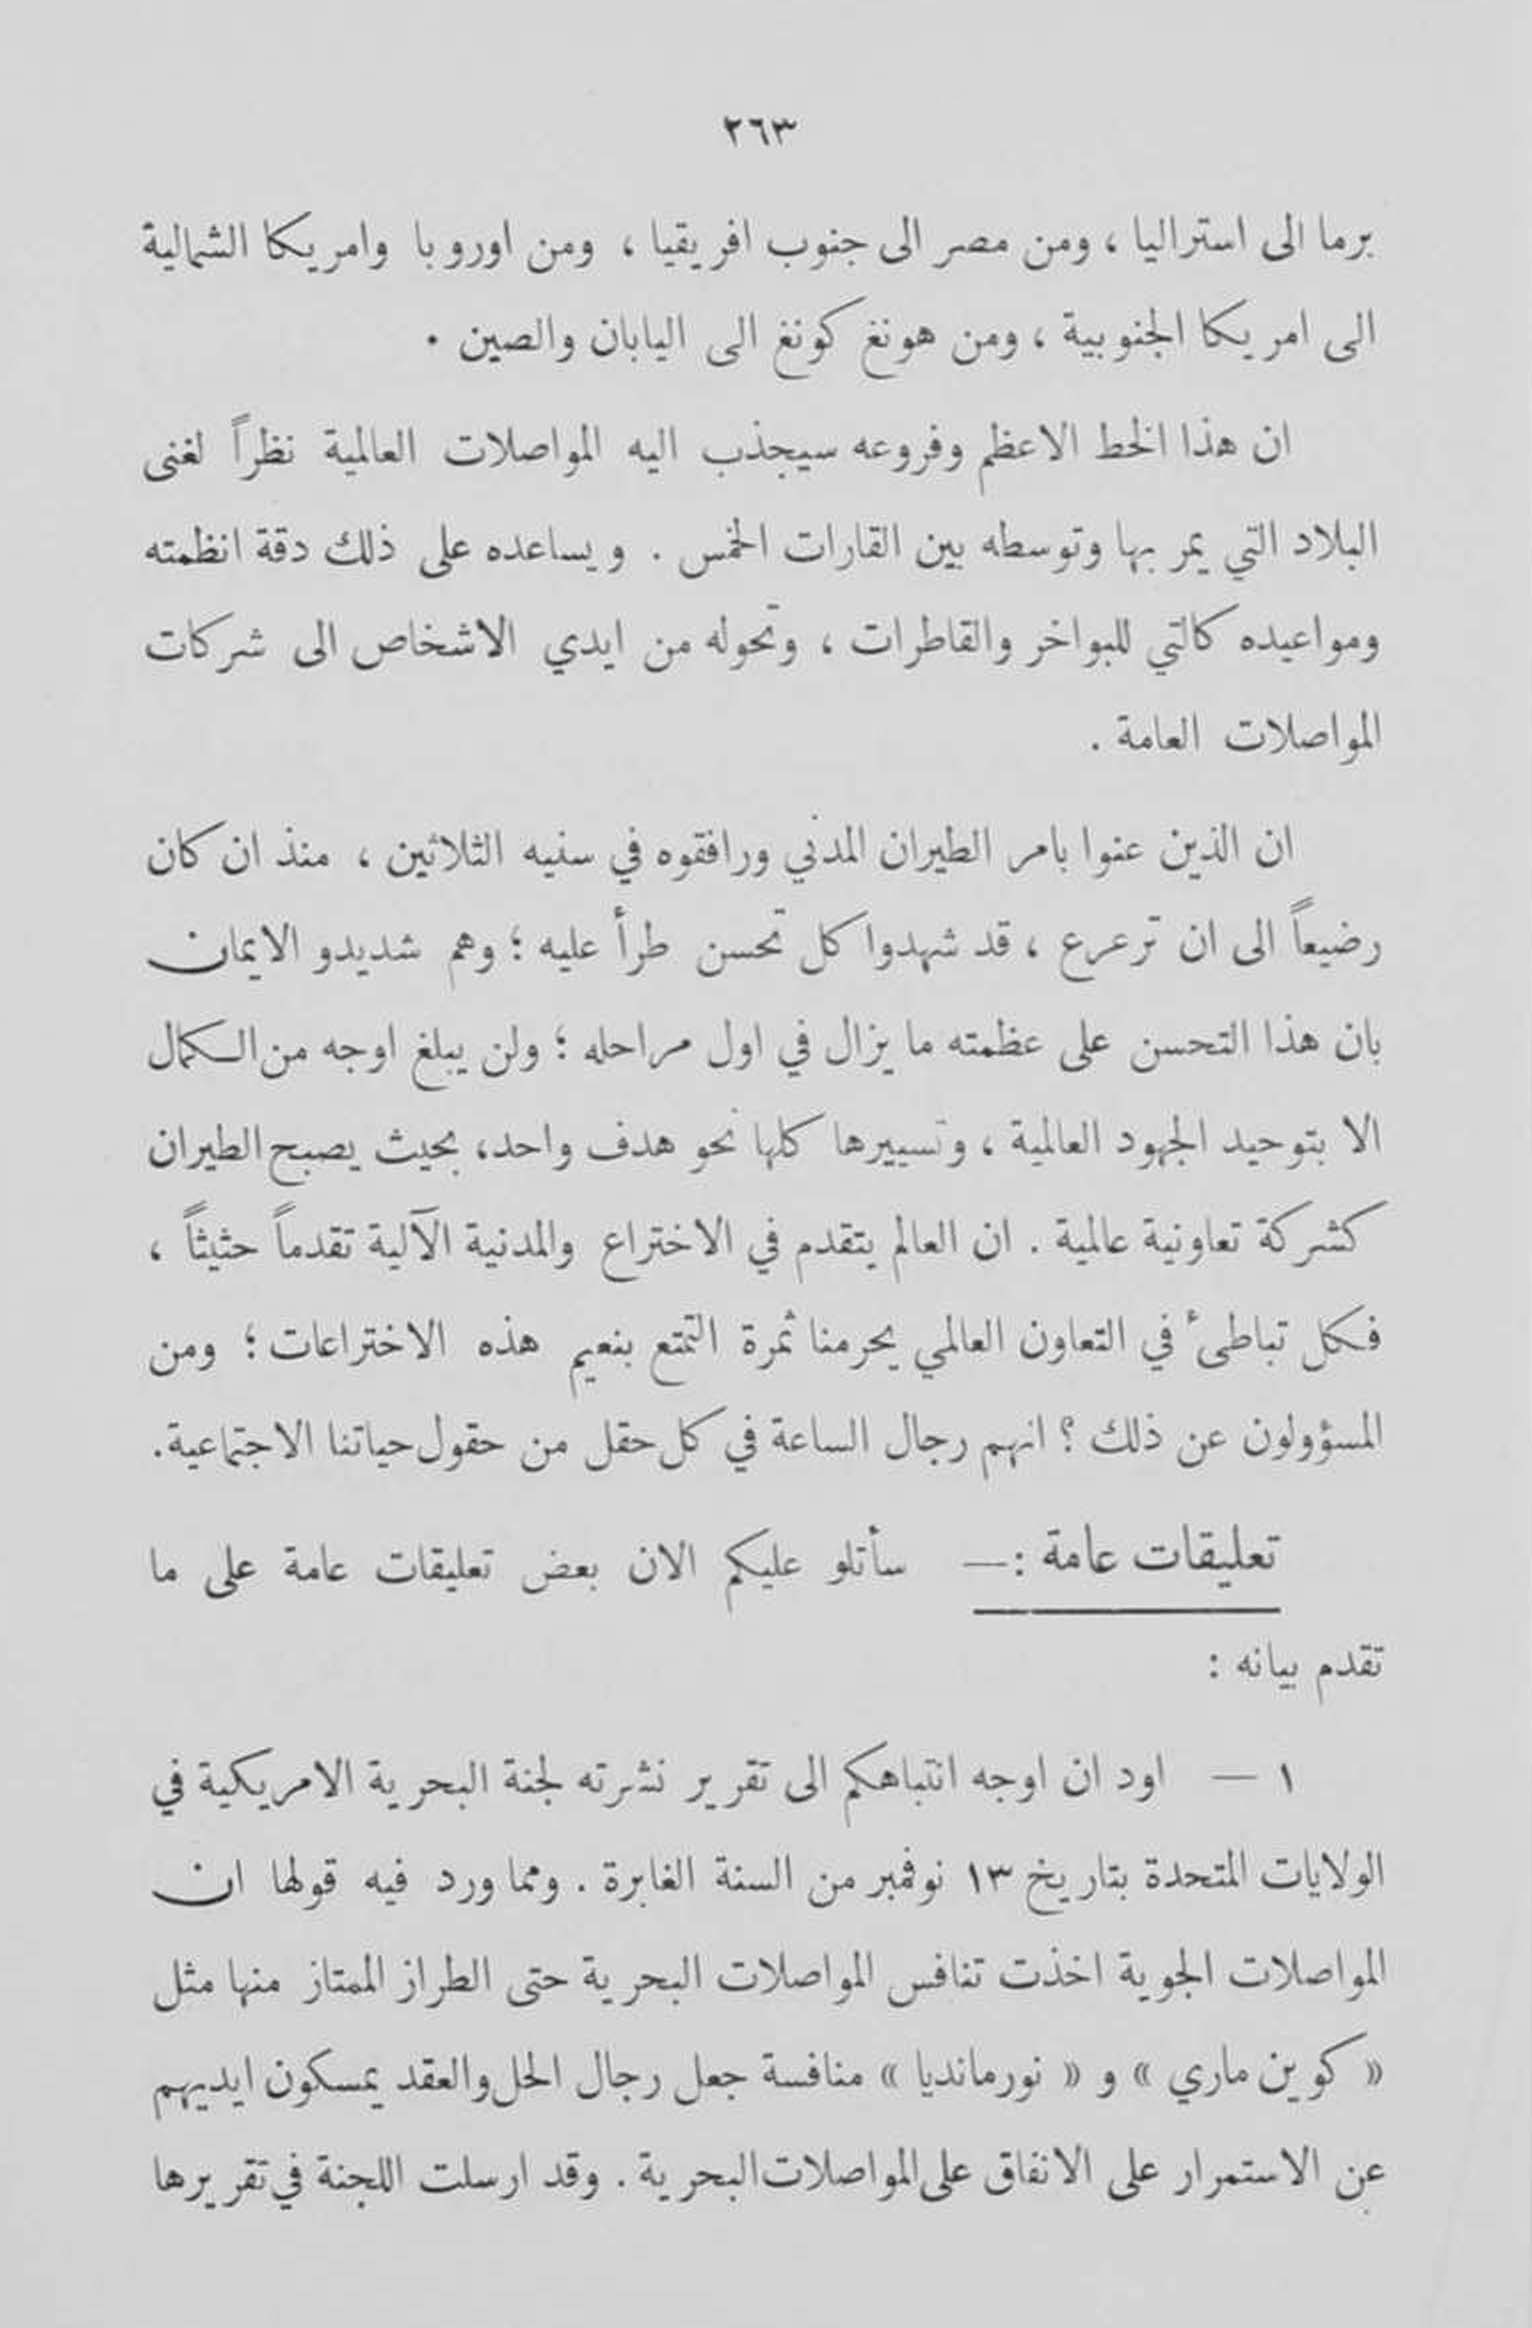 ٢٦٣
برما الى استراليا ، ومن مصر الى جنوب افريقيا ، ومن اوروبا وامريكا الشمالية
الى امريكا الجنوبية ، ومن هونغ كونغ الى اليابان والصين .
ان هذا الخط الاعظم وفروعه سيجذب اليه المواصلات العالمية نظراً لغنى
البلاد التي يمر بها وتوسطه بين القارات الخمس . ويساعده على ذلك دقة انظمته
ومواعيده كالتي للبواخر والقاطرات ، وتحوله من ايدي الاشخاص الى شركات
المواصلات العامة .
ان الذين عنوا بامر الطيران المدني ورافقوه في سنيه الثلاثين ، منذ ان كان
رضيعاً الى ان ترعرع ، قد شهدوا كل تحسن طرأ عليه ؛ وهم شديدو الايمان
بان هذا التحسن على عظمته ما يزال في اول مراحله ؛ ولن يبلغ اوجه من الكمال
الا بتوحيد الجهود العالمية ، وتسييرها كلها نحو هدف واحد، بحيث يصبح الطيران
كشركة تعاونية عالمية . ان العالم يتقدم في الاختراع والمدنية الآلية تقدماً حثيثاً ،
فكل تباطئ في التعاون العالمي يحرمنا ثمرة التمتع بنعيم هذه الاختراعات ؛ ومن
المسؤولون عن ذلك ؟ انهم رجال الساعة في كل حقل من حقول حياتنا الاجتماعية.
تعليقات عامة :— سأتلو عليكم الان بعض تعليقات عامة على ما
تقدم بيانه :
١ — اود ان اوجه انتباهكم الى تقرير نشرته لجنة البحرية الامريكية في
الولايات المتحدة بتاريخ ١٣ نوفمبر من السنة الغابرة . ومما ورد فيه قولها ان
المواصلات الجوية اخذت تنافس المواصلات البحرية حتى الطراز الممتاز منها مثل
« كوين ماري » و « نورمانديا » منافسة جعل رجال الحل والعقد يمسكون ايديهم
عن الاستمرار على الانفاق على المواصلات البحرية . وقد ارسلت اللجنة في تقريرها